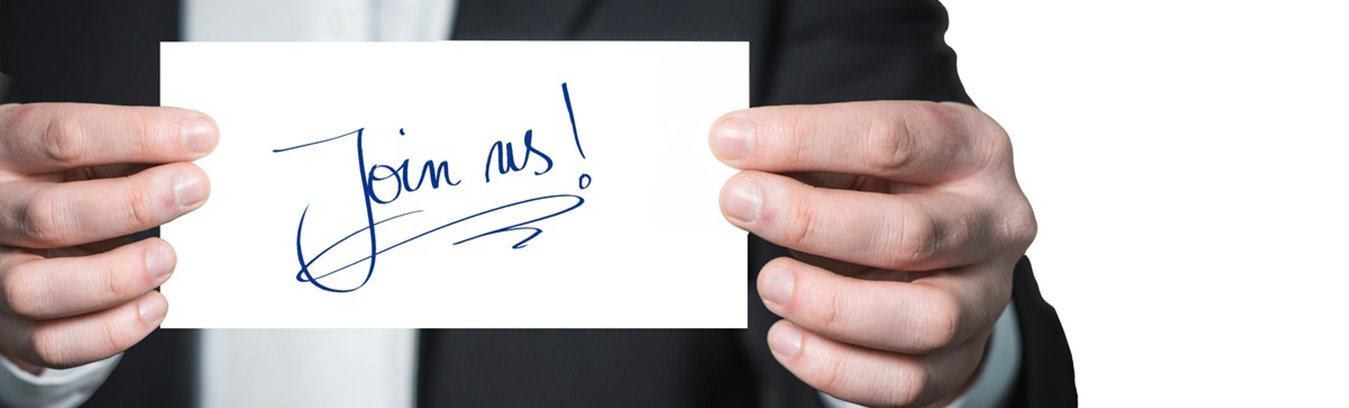 Join us!